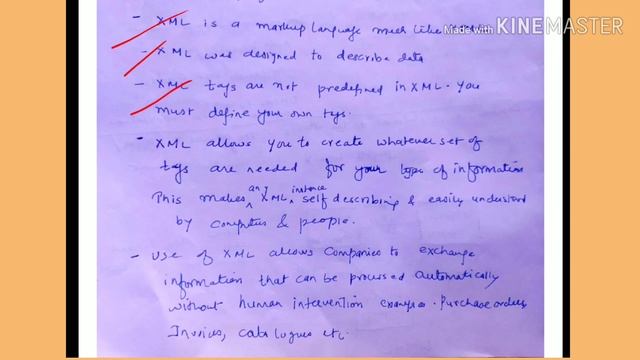 - XML is a markup language much like
Made with KINEMASTER
- XML was designed to describe data
- XML tags are not predefined in XML. You
must define your own tags.
- XML allows you to create whatever set of
tags are needed for your type of information
This makes an XML instance self describing & easily understand
by computers & people.
- Use of XML allows companies to exchange
information that can be processed automatically
without human intervention examples. Purchase orders,
Invoices, catalogues etc.